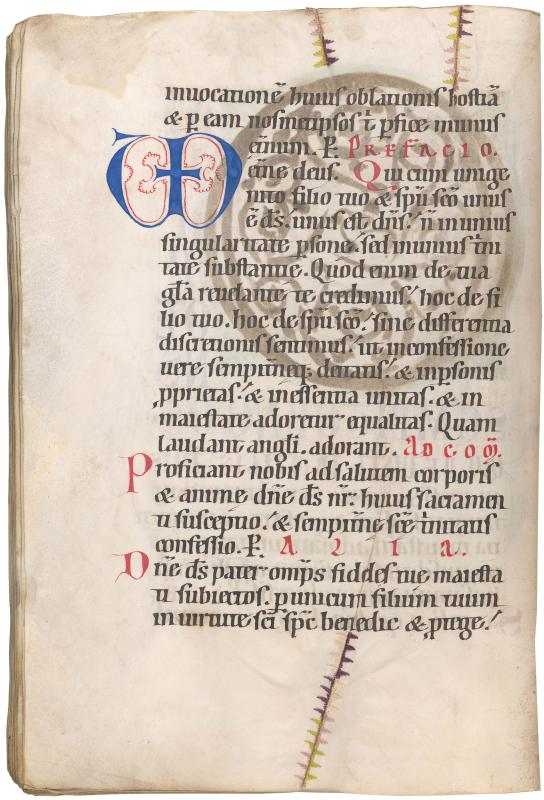 inuocationē huius oblationis hostiā
& ꝑ eam nosmetipsos t̄ ꝑfice munus
et̄num. P. PREFACIO.
et̄ne deus. Qui cum unige
nito filio tuo & spū scō unus
ē ds̄. unus est dn̄s. n̄ in unius
singularitate ꝑsone. sed in unius t̄ni
tate substantie. Quod enim de tua
gl̄a reuelante te credimus. hoc de fi
lio tuo. hoc de spū scō. sine differentia
discretionis sentimus. ut in confessione
uere sempit̄neq; deitatis. & in ꝑsonis
ꝓprietas. & in essentia unitas. & in
maiestate adoretur equalitas. Quam
laudant angl̄i. adorant. AD COM̄.
Proficiant nobis ad salutem corporis
& anime dn̄e ds̄ nr̄. huius sacramen
ti susceptio. & sempit̄ne scē t̄nitatis
confessio. P. A. L. a.
Dn̄e ds̄ pater omp̄s fiddes tue maiesta
ti subiectos. ꝑ unicum filium tuum
in uirtute sc̄i sp̄c benedic & ꝓtege.